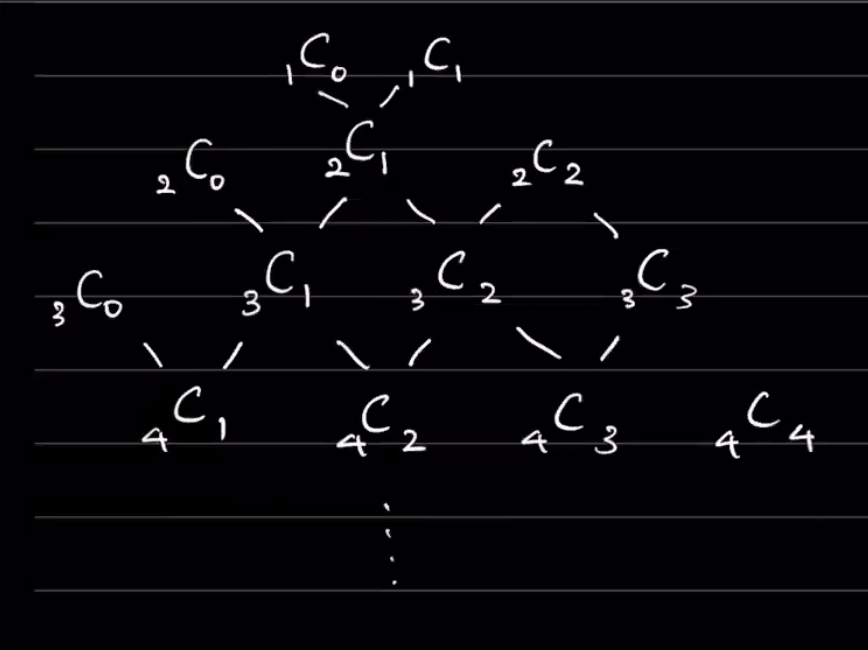 ₁C₀ ₁C₁
₂C₀ ₂C₁ ₂C₂
₃C₀ ₃C₁ ₃C₂ ₃C₃
₄C₁ ₄C₂ ₄C₃ ₄C₄